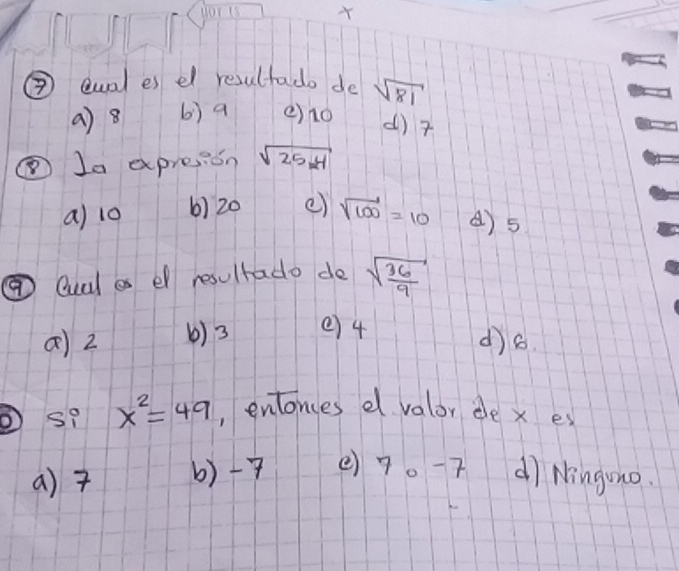 x
⑦ cual es el resultado de √81
a) 8 b) 9 c) 10 d) 7
⑧ La expresión √25x4
a) 10 b) 20 c) √100 = 10 d) 5
⑨ Cual es el resultado de √36/9
a) 2 b) 3 c) 4 d) 6.
si x² = 49, entonces el valor de x es
a) 7 b) -7 c) 7 o -7 d) Ninguno.